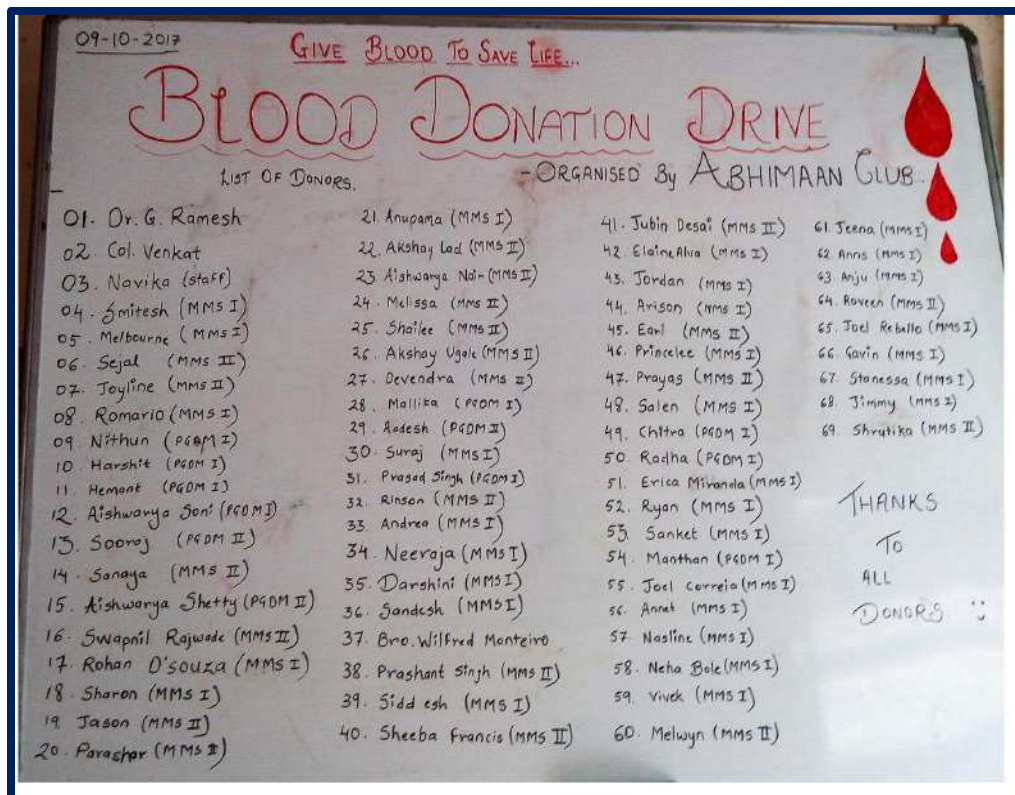 09-10-2017
GIVE BLOOD TO SAVE LIFE...
BLOOD DONATION DRIVE
LIST OF DONORS.
- ORGANISED By ABHIMAAN CLUB..
01. Dr. G. Ramesh
02. Col. Venkat
03. Navika (staff)
04. Smitesh (MMS I)
05. Melbourne (MMS I)
06. Sejal (MMS II)
07. Joyline (MMS II)
08. Romario (MMS I)
09. Nithun (PGDM I)
10. Harshit (PGDM I)
11. Hemant (PGDM I)
12. Aishwarya Soni (PGDM I)
13. Sooraj (PGDM II)
14. Sanaya (MMS II)
15. Aishwarya Shetty (PGDM II)
16. Swapnil Rajwade (MMS II)
17. Rohan D'souza (MMS I)
18. Sharon (MMS I)
19. Jason (MMS II)
20. Parashar (MMS II)
21. Anupama (MMS I)
22. Akshay Lad (MMS II)
23 Aishwarya Nair (MMS II)
24. Melissa (MMS II)
25. Shailee (MMS II)
26. Akshay Ugale (MMS II)
27. Devendra (MMS II)
28. Mallika (PGDM I)
29. Aadesh (PGDM II)
30. Suraj (MMS I)
31. Prasad Singh (PGDM I)
32. Rinson (MMS II)
33. Andrea (MMS I)
34. Neeraja (MMS I)
35. Darshini (MMS I)
36. Sandesh (MMS I)
37. Bro. Wilfred Monteiro
38. Prashant Singh (MMS II)
39. Siddesh (MMS I)
40. Sheeba Francis (MMS II)
41. Jubin Desai (MMS II)
42. Elaine Alva (MMS I)
43. Jordan (MMS I)
44. Arison (MMS I)
45. Earl (MMS II)
46. Princelee (MMS I)
47. Prayas (MMS II)
48. Salen (MMS I)
49. Chitra (PGDM I)
50. Radha (PGDM I)
51. Erica Miranda (MMS I)
52. Ryan (MMS I)
53. Sanket (MMS I)
54. Manthan (PGDM I)
55. Joel Correia (MMS I)
56. Annet (MMS I)
57. Nasline (MMS I)
58. Neha Bole (MMS I)
59. Vivek (MMS I)
60. Melwyn (MMS II)
61. Jeena (MMS I)
62. Anns (MMS I)
63. Anju (MMS I)
64. Raveen (MMS II)
65. Joel Rebello (MMS I)
66. Gavin (MMS I)
67. Stanessa (MMS I)
68. Jimmy (MMS I)
69. Shrutika (MMS II)
THANKS
TO
ALL
DONORS :)